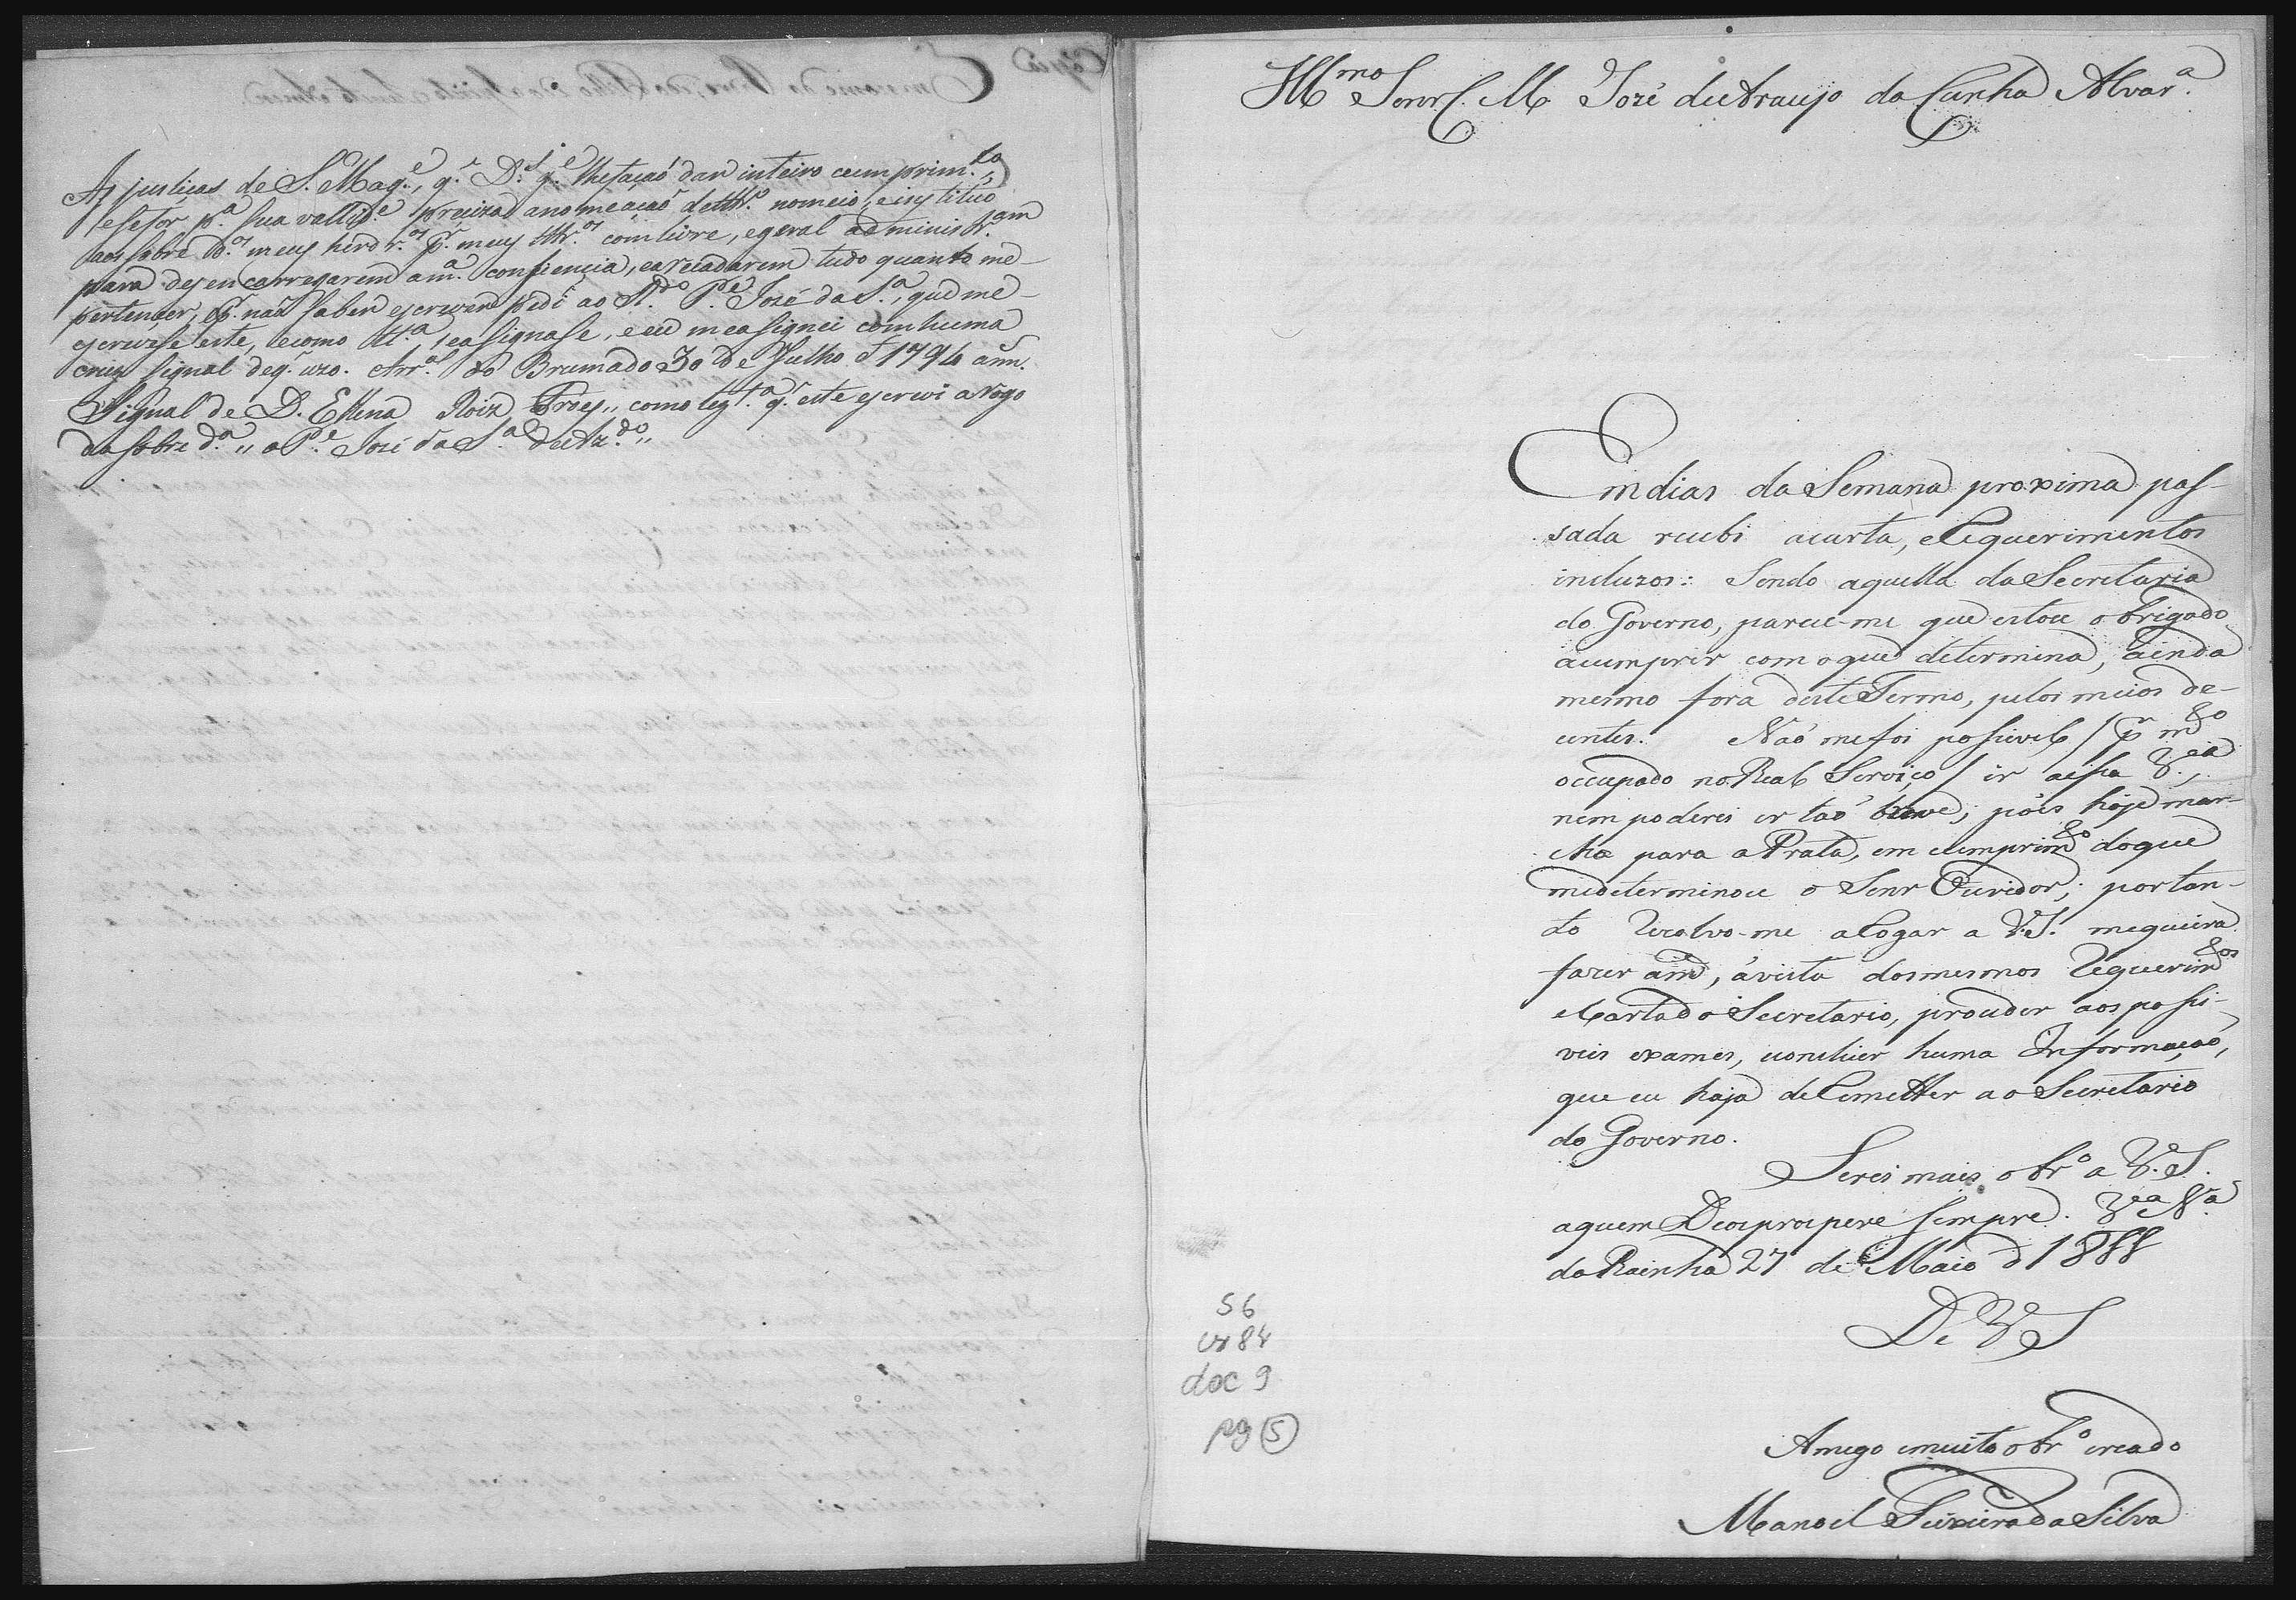 As justiças de S. Mag.e, q.' D.s g.e lhefação dar inteiro cumprim.to,
esefor p.a sua vallid.e precizo anomeação detttr.o nomeio, einstituo
aos sobre d.os meus herdr.os p.r meus tttr.os com livre, egeral administr.am
para desencarregarem am.a consiencia, earecadarem tudo quanto me-
pertencer, e p.r não saber escrever pedi ao R.do P.e José da S.a, que me-
escrevese este, ecomo tt.a, seasignase, eeu measignei comhuma
cruz signal deq. uzo. Arr.al do Brumado 30 de Julho d 1794 ann.
Signal de D. Ellena Roiz Froes,, como test.a q.' este escrevi arogo
dasobre d.a ,, o P.e José da S.a de Az.do ,,
Ill.mo Senr C. M. José de Araujo da Cunha Alvar.a
Em dias da Semana proxima pas-
sada recebi acarta, eRequerimentos
incluzos: Sendo aquella da Secretaria
do Governo, parece-me que estou obrigado
acumprir com oque determina, ainda
mesmo fora deste Termo, pelos meios de-
centes. Não mefoi possivel / p.r m.to
occupado no Real Serviço / ir aessa V.a,
nem poderei ir tão breve; pois hoje mar-
cho para a Prata, em cumprim.to doque
medeterminou o Senr Ouvidor; portan-
to Rezolvo-me aRogar a V.S. mequeira
fazer a m.ce, ávista dosmesmos Requerim.tos
eCartado Secretario, proceder aos possi-
veis exames, econcluir huma Informação,
que eu haja deRemetter ao Secretario
do Governo.
Serei mais obr.o a V.S.
aquem Deos prospere sempre. V.a N.a
da Rainha 27 de Maio d 18
De V S
Amigo emuito obr.o creado
Manoel Teixeira da Silva
56
cx 84
doc 9
pg 5